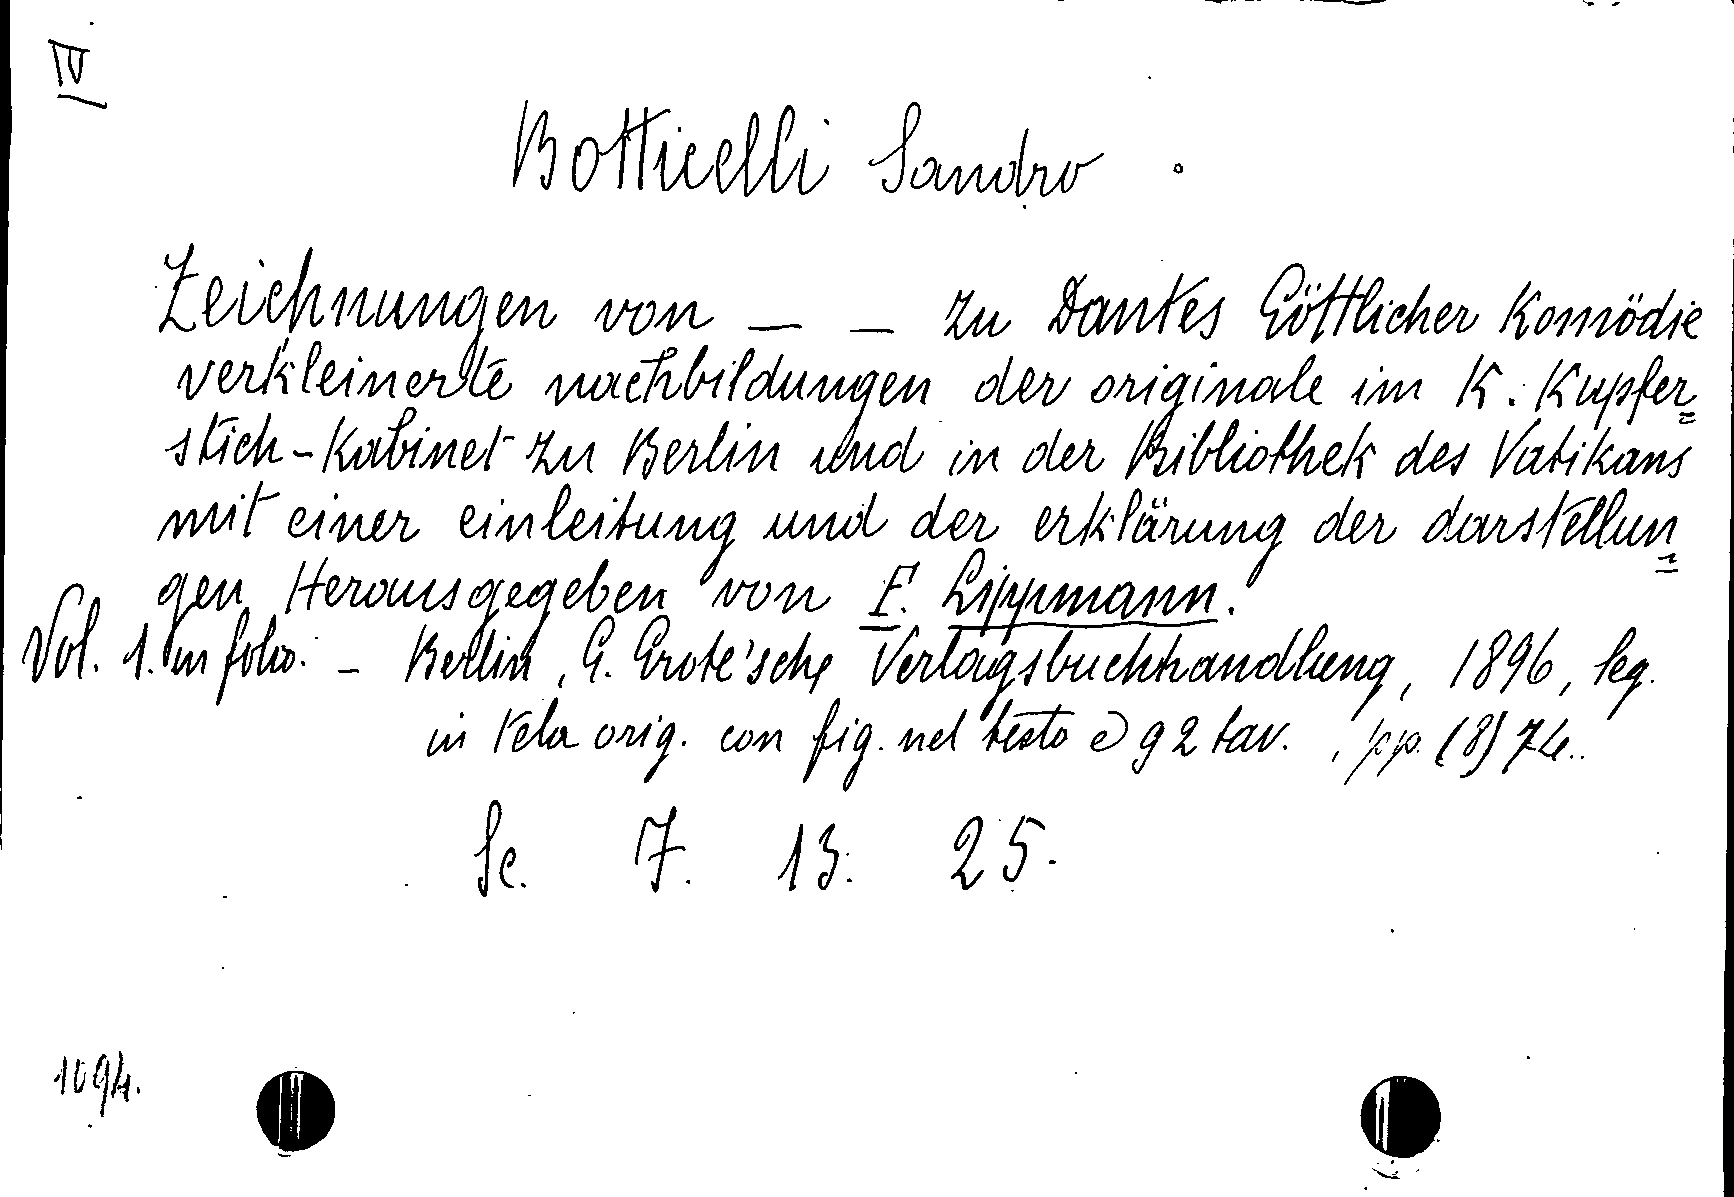 IV
Botticelli Sandro .
Zeichnungen von _ _ zu Dantes Göttlicher Komödie
verkleinerte nachbildungen der originale im K. Kupfer=
stich-Kabinet zu Berlin und in der Bibliothek des Vatikans
mit einer einleitung und der erklärung der darstellun=
gen Herausgegeben von F. Lippmann.
Vol. 1. in folio. - Berlin, G. Grote'sche Verlagsbuchhandlung, 1896, leg.
in tela orig. con fig. nel testo e 92 tav. , pp. (8) 74..
Sc. 7. 13. 25.
1094.